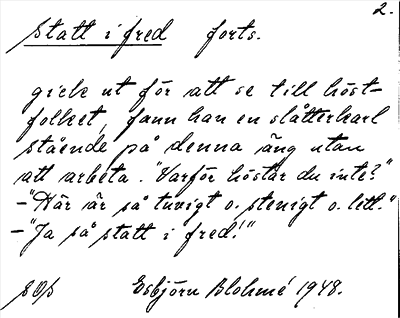 2.
Statt i fred forts.
gick ut för att se till höst-
folket, fann han en slåtterkarl
stående på denna äng utan
att arbeta. "Varför höstar du inte?"
-"Här är så tuvigt o. stenigt o. lett."
-"Ja så statt i fred!"
Esbjörn Blohmé 1948.